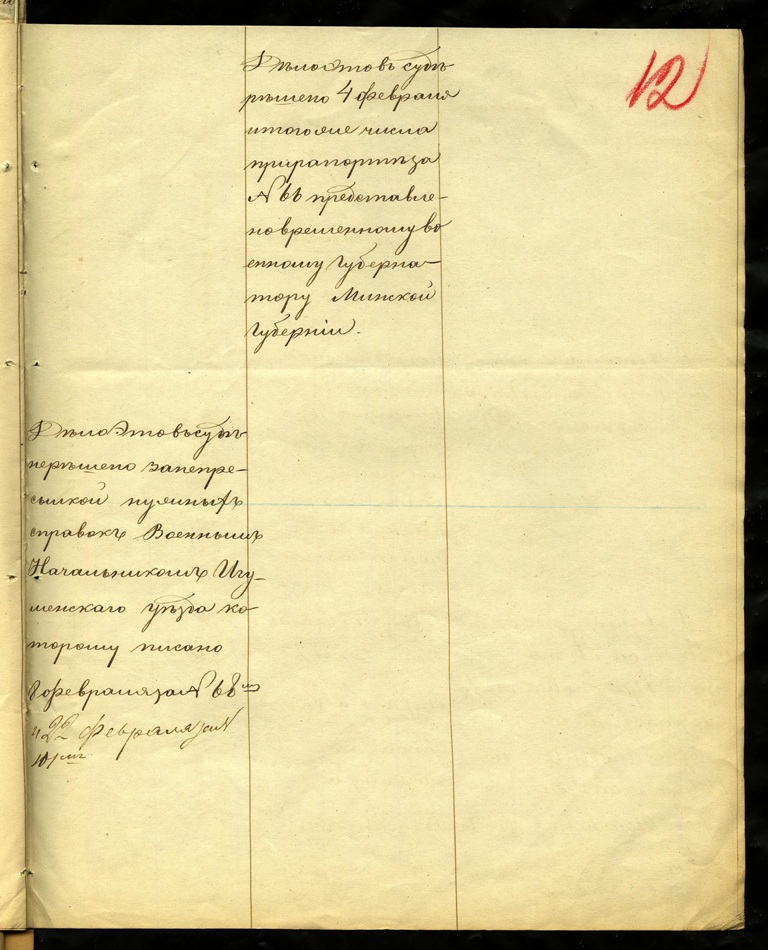 12
Дѣло это въ судѣ
рѣшено 4 февраля
и того же числа
при рапортѣ за
№ 66 представле-
но временному во
енному Губерна-
тору Минской
Губерніи.
Дѣло это въ судѣ
нерѣшено за непре-
сылкой нужныхъ
справокъ Военнымъ
Начальникомъ Игу-
менскаго уѣзда ко
торому писано
8 февраля за № 68мъ
и 22 февраля за №